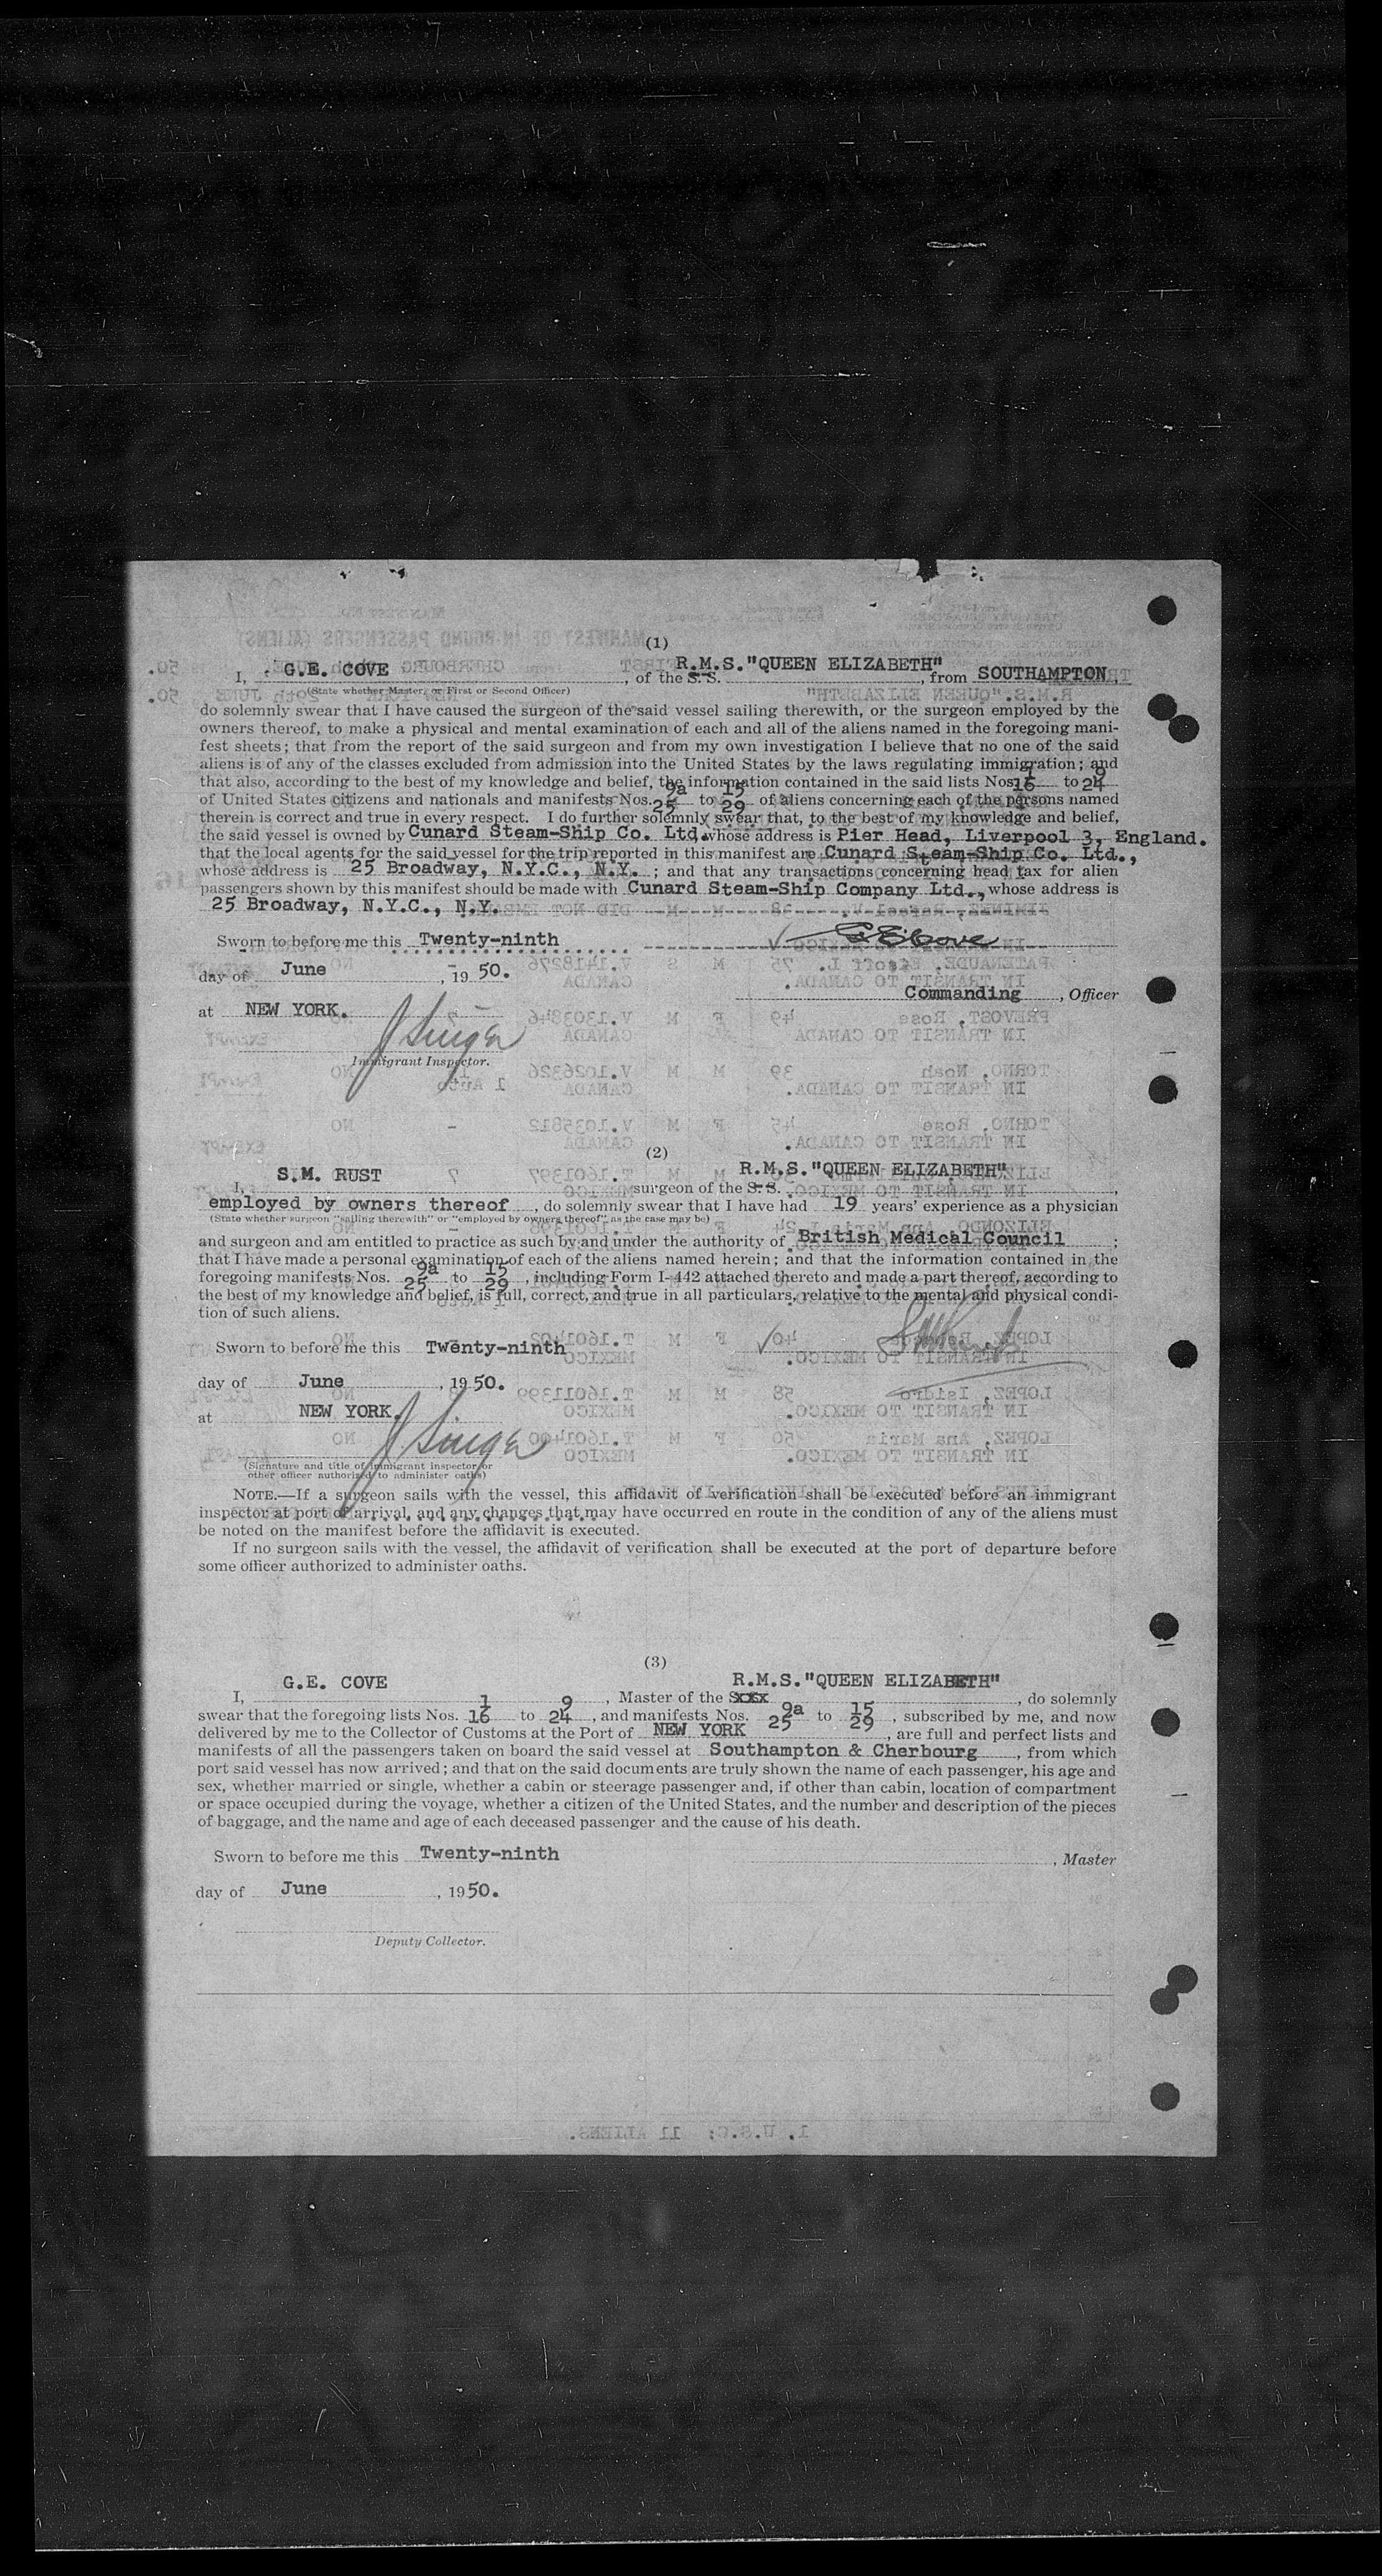 (1)
I, G.E. COVE, of the S.S. R.M.S."QUEEN ELIZABETH", from SOUTHAMPTON,
(State whether Master, or First or Second Officer)
do solemnly swear that I have caused the surgeon of the said vessel sailing therewith, or the surgeon employed by the
owners thereof, to make a physical and mental examination of each and all of the aliens named in the foregoing mani-
fest sheets; that from the report of the said surgeon and from my own investigation I believe that no one of the said
aliens is of any of the classes excluded from admission into the United States by the laws regulating immigration; and
that also, according to the best of my knowledge and belief, the information contained in the said lists Nos. 1 16 to 9 24
of United States citizens and nationals and manifests Nos. 9a 25 to 15 29 of aliens concerning each of the persons named
therein is correct and true in every respect. I do further solemnly swear that, to the best of my knowledge and belief,
the said vessel is owned by Cunard Steam-Ship Co. Ltd. whose address is Pier Head, Liverpool 3, England.
that the local agents for the said vessel for the trip reported in this manifest are Cunard Steam-Ship Co. Ltd.,
whose address is 25 Broadway, N.Y.C., N.Y. ; and that any transactions concerning head tax for alien
passengers shown by this manifest should be made with Cunard Steam-Ship Company Ltd., whose address is
25 Broadway, N.Y.C., N.Y.
Sworn to before me this Twenty-ninth G E Cove
day of June, 19 50.
Commanding, Officer
at NEW YORK.
J Singer
Immigrant Inspector.
(2)
I, S.M. RUST surgeon of the S.S. R.M.S."QUEEN ELIZABETH",
employed by owners thereof, do solemnly swear that I have had 19 years' experience as a physician
(State whether surgeon "sailing therewith" or "employed by owners thereof" as the case may be)
and surgeon and am entitled to practice as such by and under the authority of British Medical Council ;
that I have made a personal examination of each of the aliens named herein; and that the information contained in the
foregoing manifests Nos. 9a 25 to 15 29, including Form I-442 attached thereto and made a part thereof, according to
the best of my knowledge and belief, is full, correct, and true in all particulars, relative to the mental and physical condi-
tion of such aliens.
Sworn to before me this Twenty-ninth S M Rust
day of June, 19 50.
at NEW YORK.
J Singer
(Signature and title of immigrant inspector or
other officer authorized to administer oaths)
NOTE.—If a surgeon sails with the vessel, this affidavit of verification shall be executed before an immigrant
inspector at port of arrival, and any changes that may have occurred en route in the condition of any of the aliens must
be noted on the manifest before the affidavit is executed.
If no surgeon sails with the vessel, the affidavit of verification shall be executed at the port of departure before
some officer authorized to administer oaths.
(3)
I, G.E. COVE, Master of the SXXX R.M.S."QUEEN ELIZABETH", do solemnly
swear that the foregoing lists Nos. 1 16 to 9 24, and manifests Nos. 9a 25 to 15 29, subscribed by me, and now
delivered by me to the Collector of Customs at the Port of NEW YORK, are full and perfect lists and
manifests of all the passengers taken on board the said vessel at Southampton & Cherbourg, from which
port said vessel has now arrived; and that on the said documents are truly shown the name of each passenger, his age and
sex, whether married or single, whether a cabin or steerage passenger and, if other than cabin, location of compartment
or space occupied during the voyage, whether a citizen of the United States, and the number and description of the pieces
of baggage, and the name and age of each deceased passenger and the cause of his death.
Sworn to before me this Twenty-ninth
, Master
day of June, 19 50.
Deputy Collector.